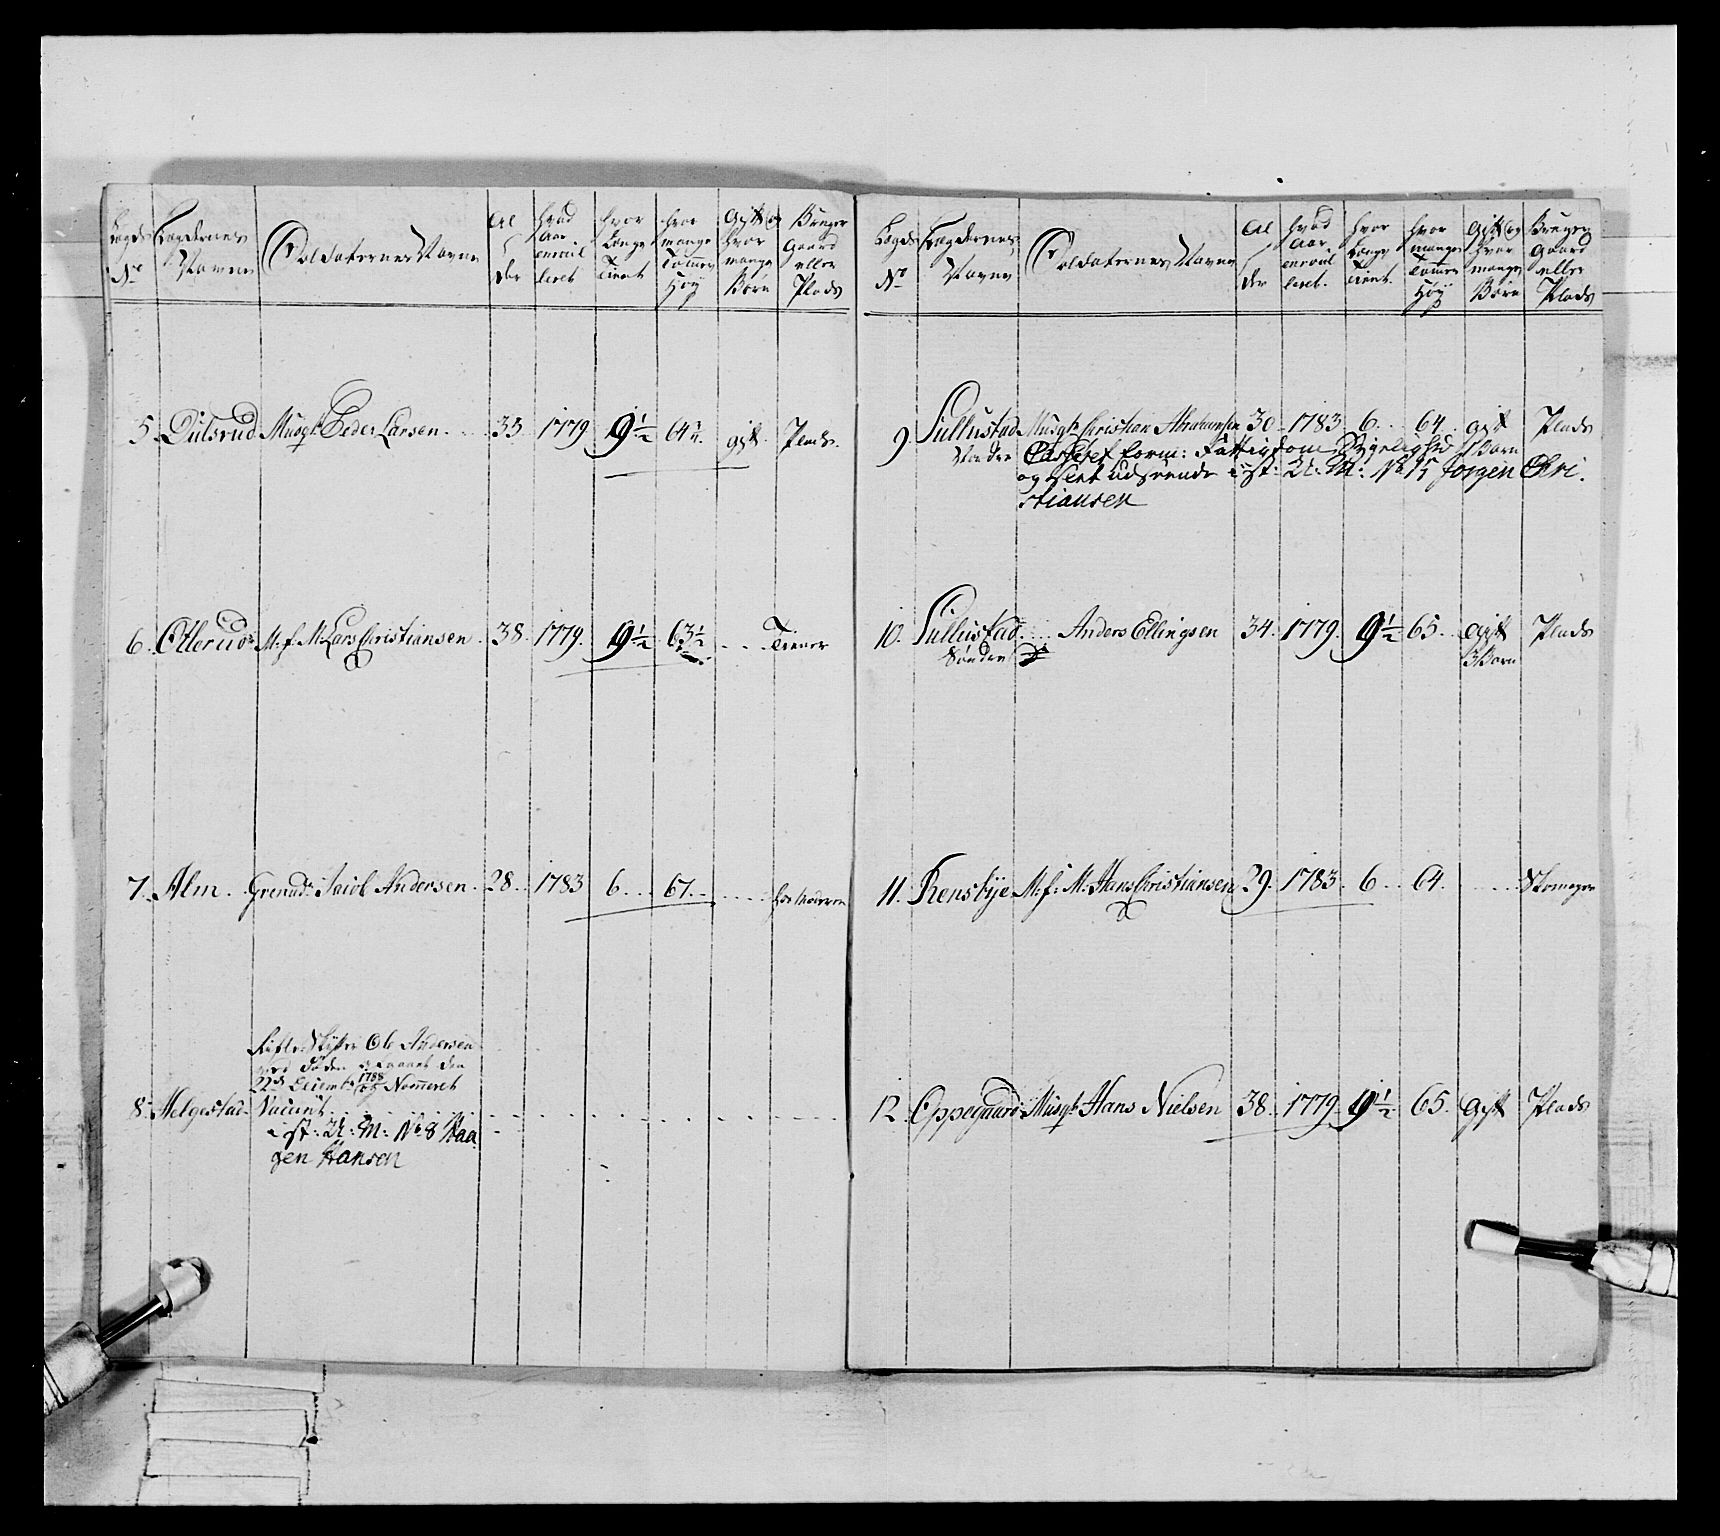 Lægds No Lægdernes Navne Soldaternes Navne Alder hvad Aar enroulleret hvor Længe Tient hvor mange Tommer Høy Gift og hvor mange Børn Bruger Gaard eller Plads
5. Dulsrud Musqt Peder Larsen 33 1779 9½ 64¼ gift Plads
6. Ollerud M:f:M: Lars Christiansen 38 1779 9½ 63½ Tiener
7. Alm Grenad: Jacob Andersen 28 1783 6 67
Ole Andersen
ved Døden den
22de Decembr 1788 Nommeret
8. Melgestad Vacant
i st: U: M: No 8 Haa
gen Hansen
Lægds No Lægdernes Navne Soldaternes Navne Alder hvad Aar enroulleret hvor Længe Tient hvor mange Tommer Høy Gift og hvor mange Børn Bruger Gaard eller Plads
9 Sullustad Musqt Christian Abrahamsen 30 1783 6 64 gift Plads
Nordre Casseret form: Fattigdom Sygelighed 1 Barn
og Slet udseende i st: U: M: No 15 Jörgen Chri
stiansen
10. Sullustad Anders Ellingsen 34 1779 9½ 65 gift Plads
Søndre 3 Børn
11. Rensbye M:f:M: Hans Christiansen 29 1783 6 64 Skomager
12. Oppegaard Musqt Hans Nielsen 38 1779 9½ 65 Gift Plads